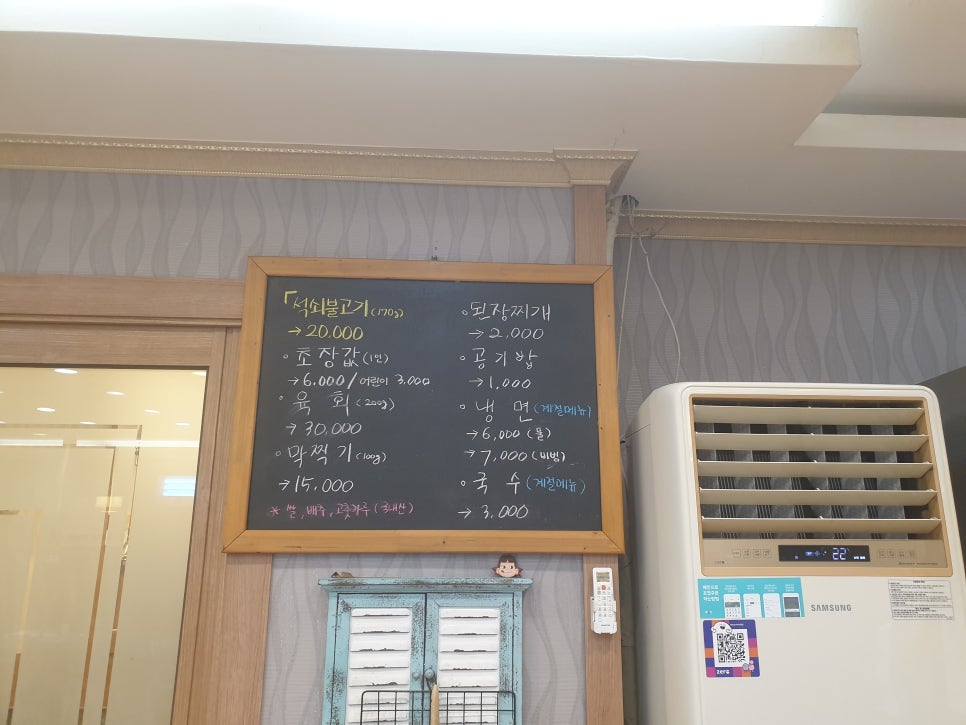 「석쇠불고기 (170g)
→ 20,000
◦ 초장값 (1인)
→ 6,000 / 어린이 3,000
◦ 육 회 (200g)
→ 30,000
◦ 막찍기 (100g)
→ 15,000
* 쌀, 배추, 고춧가루 (국내산)
◦ 된장찌개
→ 2,000
◦ 공기밥
→ 1,000
◦ 냉 면 (계절메뉴)
→ 6,000 (물)
→ 7,000 (비빔)
◦ 국 수 (계절메뉴)
→ 3,000
22
SAMSUNG
zero